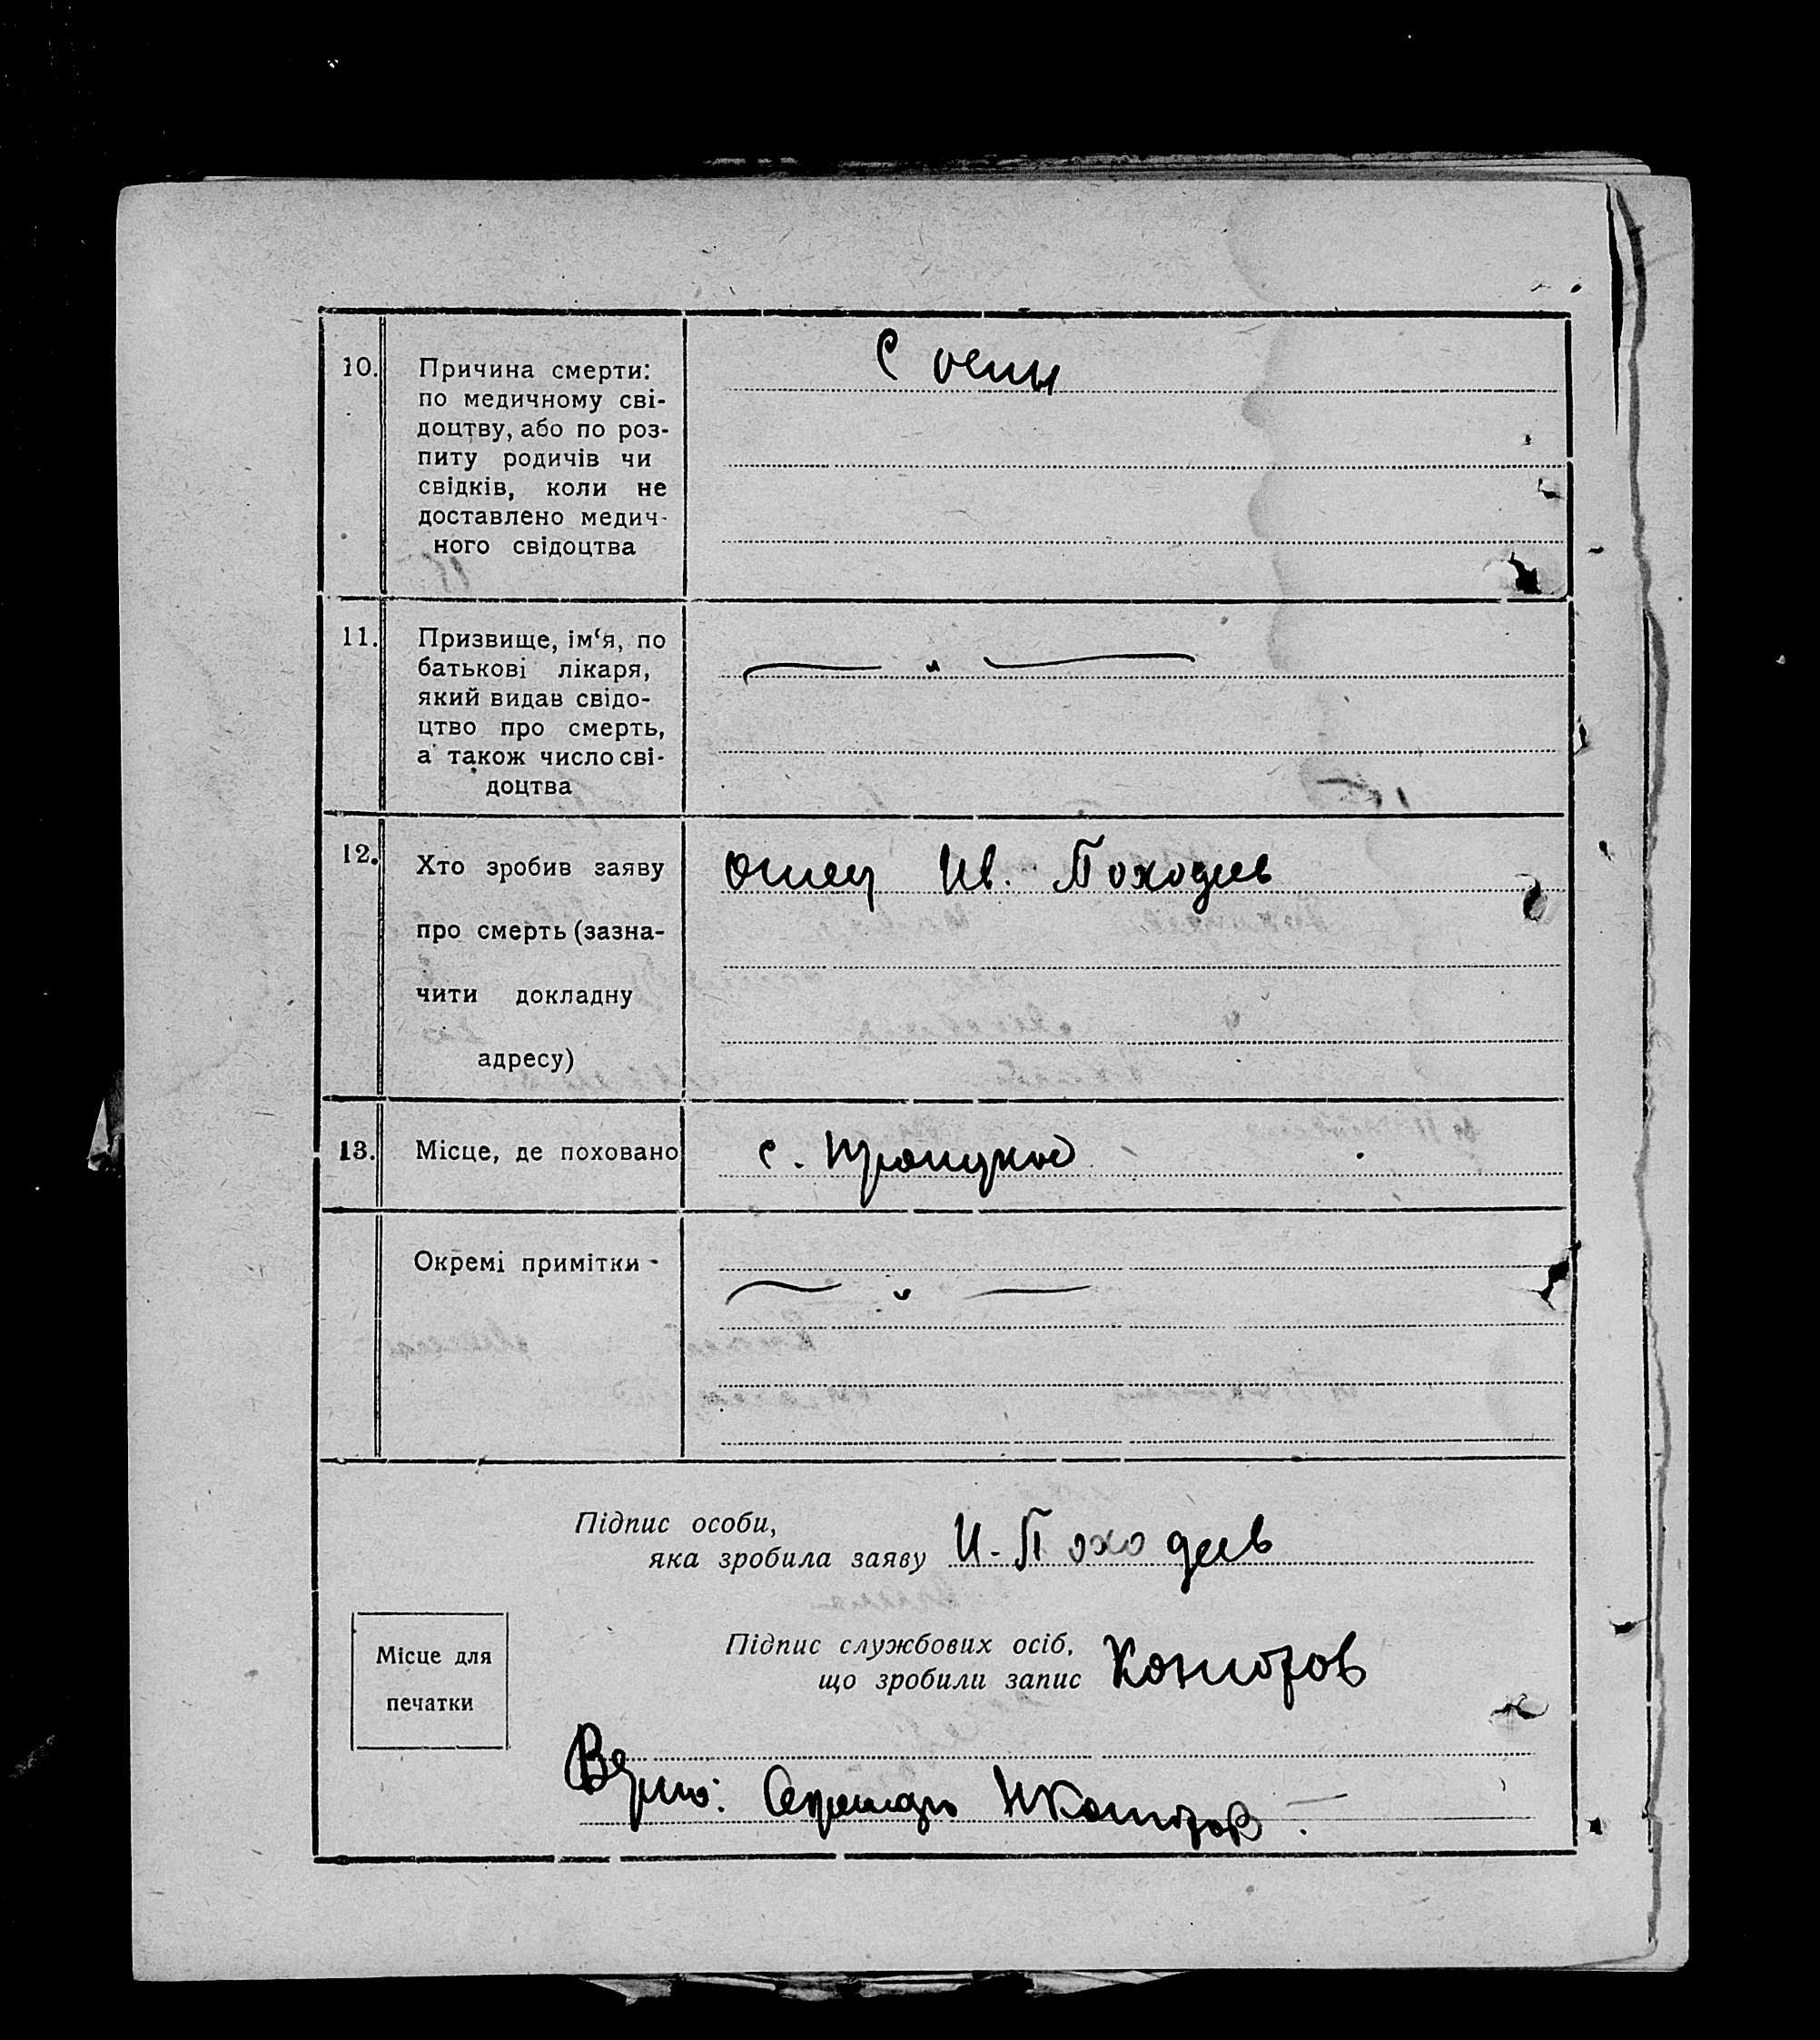 10. Причина смерти:
по медичному сві-
доцтву, або по роз-
питу родичів чи
свідків, коли не
доставлено медич-
ного свідоцтва
С оспы
11. Призвище, ім‘я, по
батькові лікаря,
який видав свідо-
цтво про смерть,
а також число сві-
доцтва
— " —
12. Хто зробив заяву
про смерть (зазна-
чити докладну
адресу)
отец Ив. Походаев
13. Місце, де поховано
с. Троицкое
Окремі примітки -
— " —
Підпис особи,
яка зробила заяву И. Походаев
Місце для
печатки
Підпис службових осіб,
що зробили запис
Верно: Секретарь